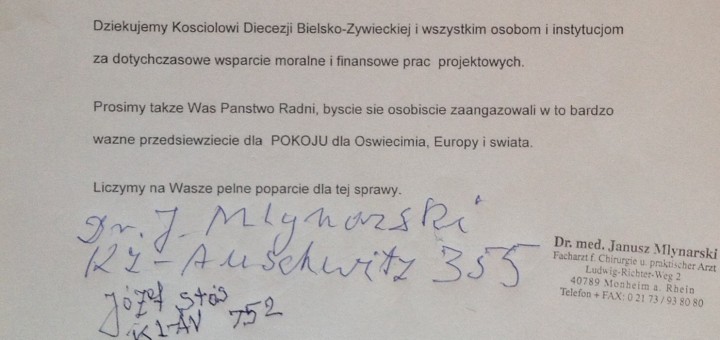 Dziekujemy Kosciolowi Diecezji Bielsko-Zywieckiej i wszystkim osobom i instytucjom
za dotychczasowe wsparcie moralne i finansowe prac projektowych.
Prosimy takze Was Panstwo Radni, byscie sie osobiscie zaangazowali w to bardzo
wazne przedsiewziecie dla POKOJU dla Oswiecimia, Europy i swiata.
Liczymy na Wasze pelne poparcie dla tej sprawy.
Dr. J. Mlynarski
KZ-Auschwitz 355
Józef Stós
KL-AU 752
Dr. med. Janusz Mlynarski
Facharzt f. Chirurgie u. praktischer Arzt
Ludwig-Richter-Weg 2
40789 Monheim a. Rhein
Telefon + FAX: 0 21 73 / 93 80 80